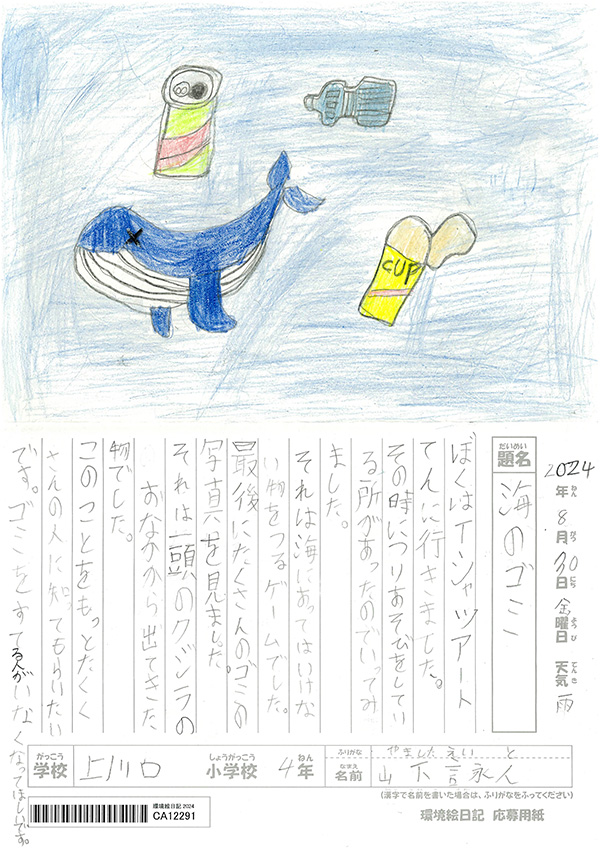 CUP
2024年8月30日金曜日 天気雨
ねん がつ にち ようび てんき
だいめい
題名 海のゴミ
ぼくはTーシャツアート
てんに行きました。
その時につりあそびをしてい
る所があったのでいってみ
ました。
それは海にあってはいけな
い物をつるゲームでした。
最後にたくさんのゴミの
写真を見ました。
それは一頭のクジラの
おなかから出てきた
物でした。
このことをもっとたくく
さんの人に知ってもらいたい
です。ゴミをすてる人がいなくなってほしいです。
がっこう しょうがっこう ねん ふりがな やました えいと
学校 上川口 小学校 4年 なまえ 名前 山下詠人
(漢字で名前を書いた場合は、ふりがなをふってください)
環境絵日記 2024
CA12291
環境絵日記 応募用紙